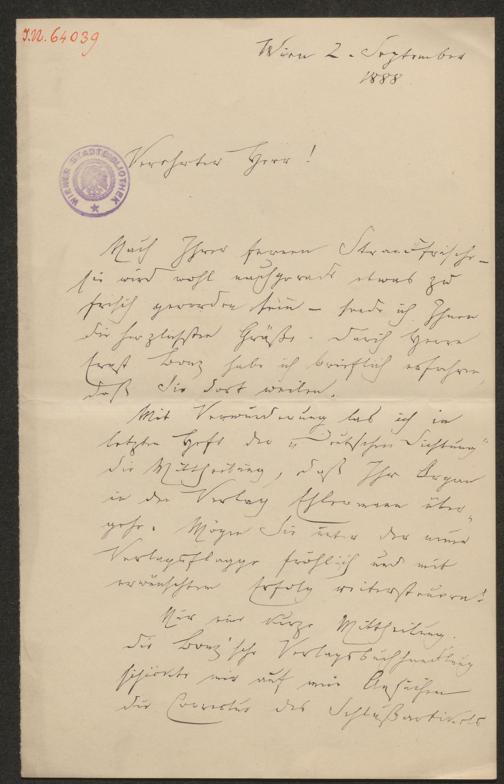 J.N. 64039
Wien 2. September
1888
WIENER STADTBIBLIOTHEK
Verehrter Herr!
Nach Ihrer fernen Strandfrische –
sie wird wohl nachgerade etwas zu
frisch geworden sein – sende ich Ihnen
die herzlichsten Grüße. Durch Herrn
Ernst Bonz habe ich brieflich erfahren
daß Sie dort weilen.
Mit Verwunderung las ich im
letzten Heft der „Deutschen Dichtung"
die Mittheilung, daß Ihr Organ
in den Verlag Ehlermann über-
gehe. Mögen Sie unter der neuen
Verlagsflagge fröhlich und mit
erwünschtem Erfolg weitersteuern!
Nur eine kurze Mittheilung.
Die Bonz'sche Verlagsbuchhandlung
schickte mir auf mein Ansuchen
die Correctur des Schlußartikels